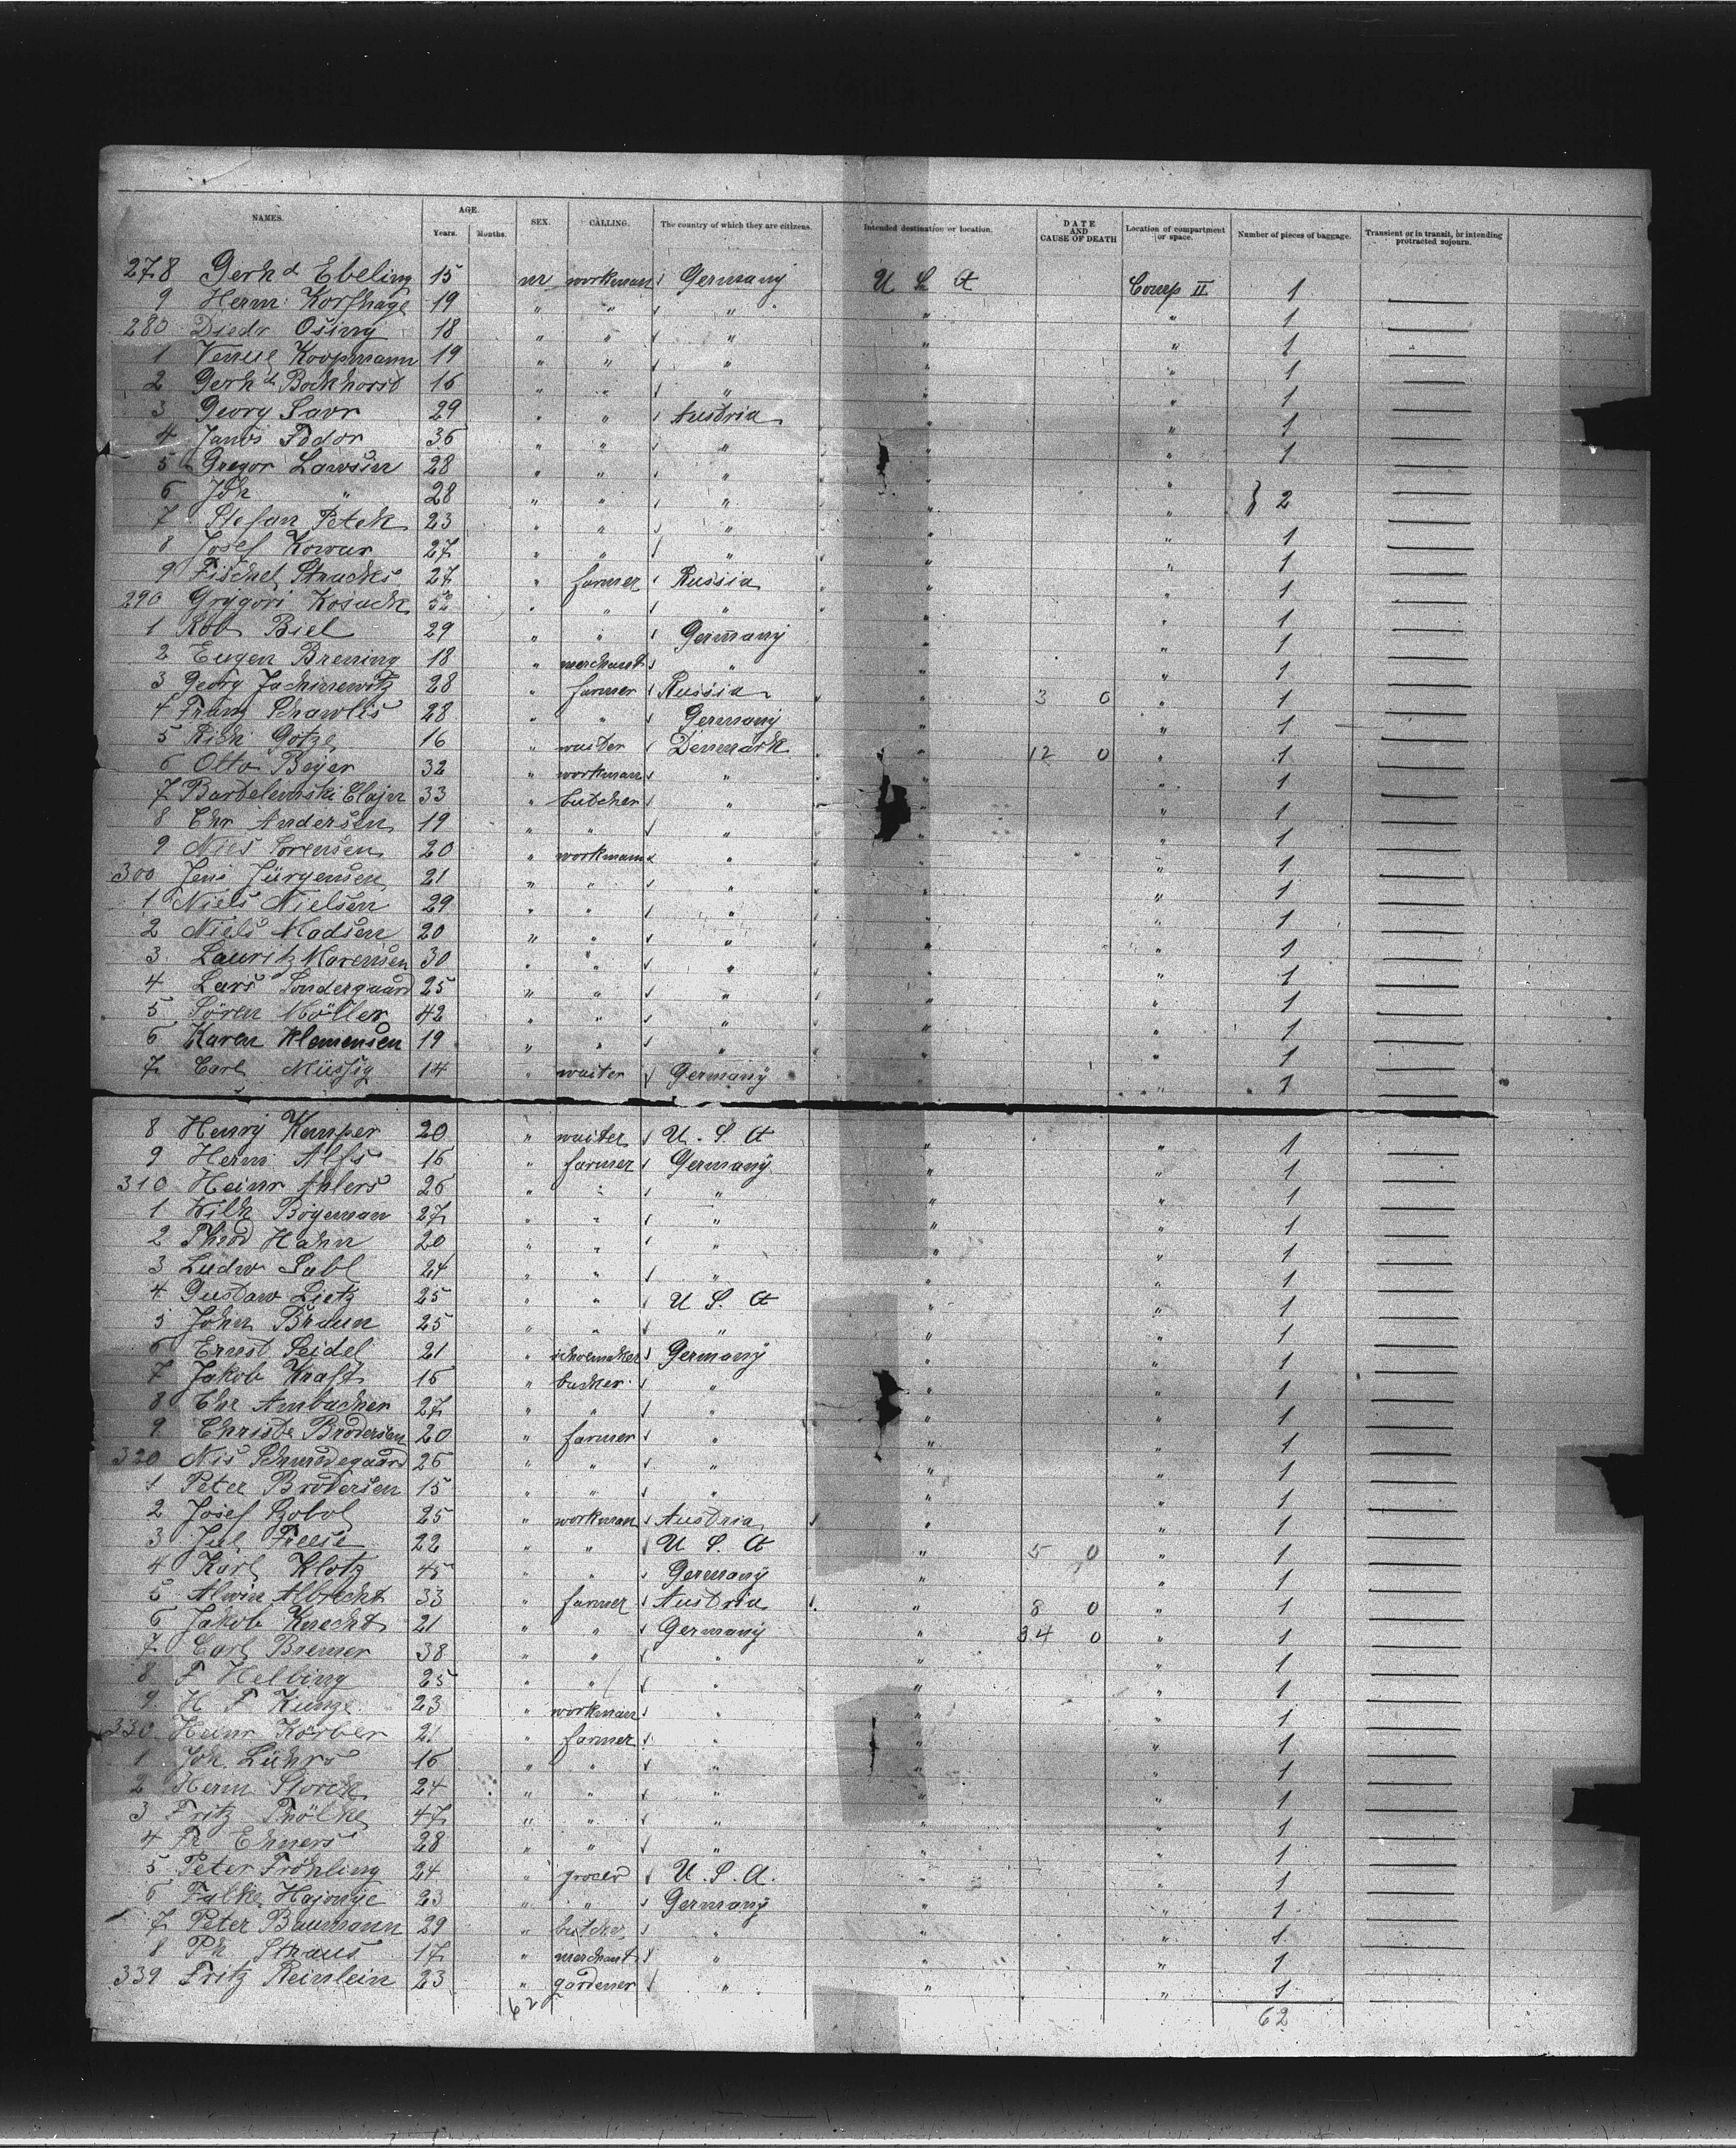 NAMES. AGE. Years. Months. SEX. CALLING. The country of which they are citizens. Intended destination or location. DATE AND CAUSE OF DEATH Location of compartment or space. Number of pieces of baggage. Transient or in transit, or intending protracted sojourn.
278 Gerhd Ebeling 15 m workman Germany U S A Comp II 1
9 Herm: Korfhage 19 " " " " " 1
280 Diedr Osing 18 " " " " " 1
1 Koopmann 19 " " " " " 1
2 Gerhd Bockhorst 16 " " " " " 1
3 Georg Savr 29 " " Austria " " 1
4 Janos Fodor 36 " " " " " 1
5 Gregor Lawsin 28 " " " " "
6 Joh " 28 " " " " " } 2
7 Stefan Petek 23 " " " " " 1
8 Josef Kowar 27 " " " " " 1
9 Fischel 27 " farmer Russia " " 1
290 Grigori Kosack 52 " " " " " 1
1 Rob Biel 29 " " Germany " " 1
2 Eugen Brening 18 " merchant " " " 1
3 Georg Jachimewitz 28 " farmer Russia " 3 0 " 1
4 Franz Schawlis 28 " " Germany " " 1
5 Rich Gotze 16 " waiter Denmark " 12 0 " 1
6 Otto Beyer 32 " workman " " " 1
7 Bartelemski 33 " butcher " " " 1
8 Chr Andersen 19 " " " " " 1
9 Nies Sorensen 20 " workman " " " 1
300 Jens Jürgensen 21 " " " " " 1
1 Niels Nielsen 29 " " " " " 1
2 Niels Madsen 20 " " " " " 1
3 Lauritz Marensen 30 " " " " " 1
4 Lars Sondergaard 25 " " " " " 1
5 Sören Möller 42 " " " " " 1
6 Karen Klemensen 19 " " " " " 1
7 Carl Müssig 14 " waiter Germany " " 1
8 Henry Kemper 20 " waiter U. S. A " " 1
9 Herm Alfs 16 " farmer Germany " " 1
310 Heinr Ahlers 26 " " " " " 1
1 Wilh Bögeman 27 " " " " " 1
2 Theod Hahn 20 " " " " " 1
3 Ludw Sabl 24 " " " " " 1
4 Gustaw Lietz 25 " " U S. A " " 1
5 John Braun 25 " " " " " 1
6 Ernest Seidel 21 " schoemaker Germany " " 1
7 Jakob Kraft 16 " backer " " " 1
8 Chr Ambacher 27 " " " " " 1
9 Christe Brodersen 20 " farmer " " " 1
320 Nis 26 " " " " " 1
1 Peter Brodersen 15 " " " " " 1
2 Josef 25 " workman Austria " " 1
3 Jul Freese 22 " " U S. A " 5 0 " 1
4 Karl Klotz 45 " " Germany " " 1
5 Alwin Albrecht 33 " farmer Austria " 8 0 " 1
6 Jakob Knecht 21 " " Germany " 34 0 " 1
7 Carl Bremer 38 " " " " " 1
8 F Helbing 25 " " " " " 1
9 H F Kunze 23 " workman " " " 1
330 Heinr Körber 21 " farmer " " " 1
1 Joh Lührs 16 " " " " " 1
2 Herm Storck 24 " " " " " 1
3 Fritz Thölke 47 " " " " " 1
4 Fr Ehners 28 " " " " " 1
5 Peter Fröhling 24 " grocer U. S. A. " " 1
6 Falke Hajonge 23 " " Germany " " 1
7 Peter Baumann 29 " butcher " " " 1
8 Ph Straus 17 " merchant " " " 1
339 Fritz Reinlein 23 " gardener " " " 1
62 62